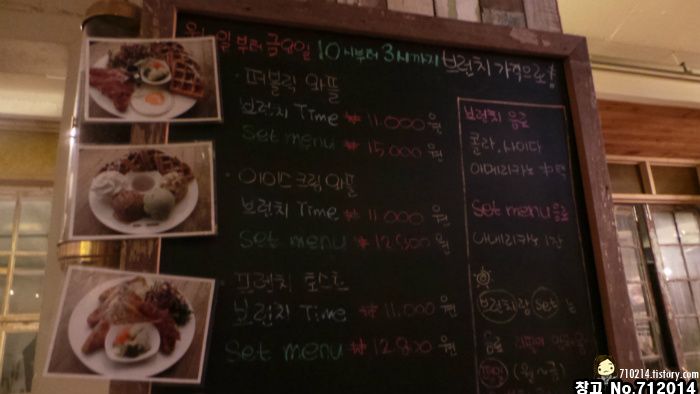 월요일부터 금요일 10시부터 3시까지 브런치 가격으로
퍼블릭 와플
브런치 Time ₩ 11.000 원
Set menu ₩ 15.000 원
아이스크림 와플
브런치 Time ₩ 11.000 원
Set menu ₩ 12.800 원
프렌치 토스트
브런치 Time ₩ 11.000 원
Set menu ₩ 12.800 원
브런치 음료
콜라, 사이다
아메리카노 中
Set menu 음료
아메리카노 1잔
브런치랑 Set 는
음료
710214.tistory.com
참고 No.712014